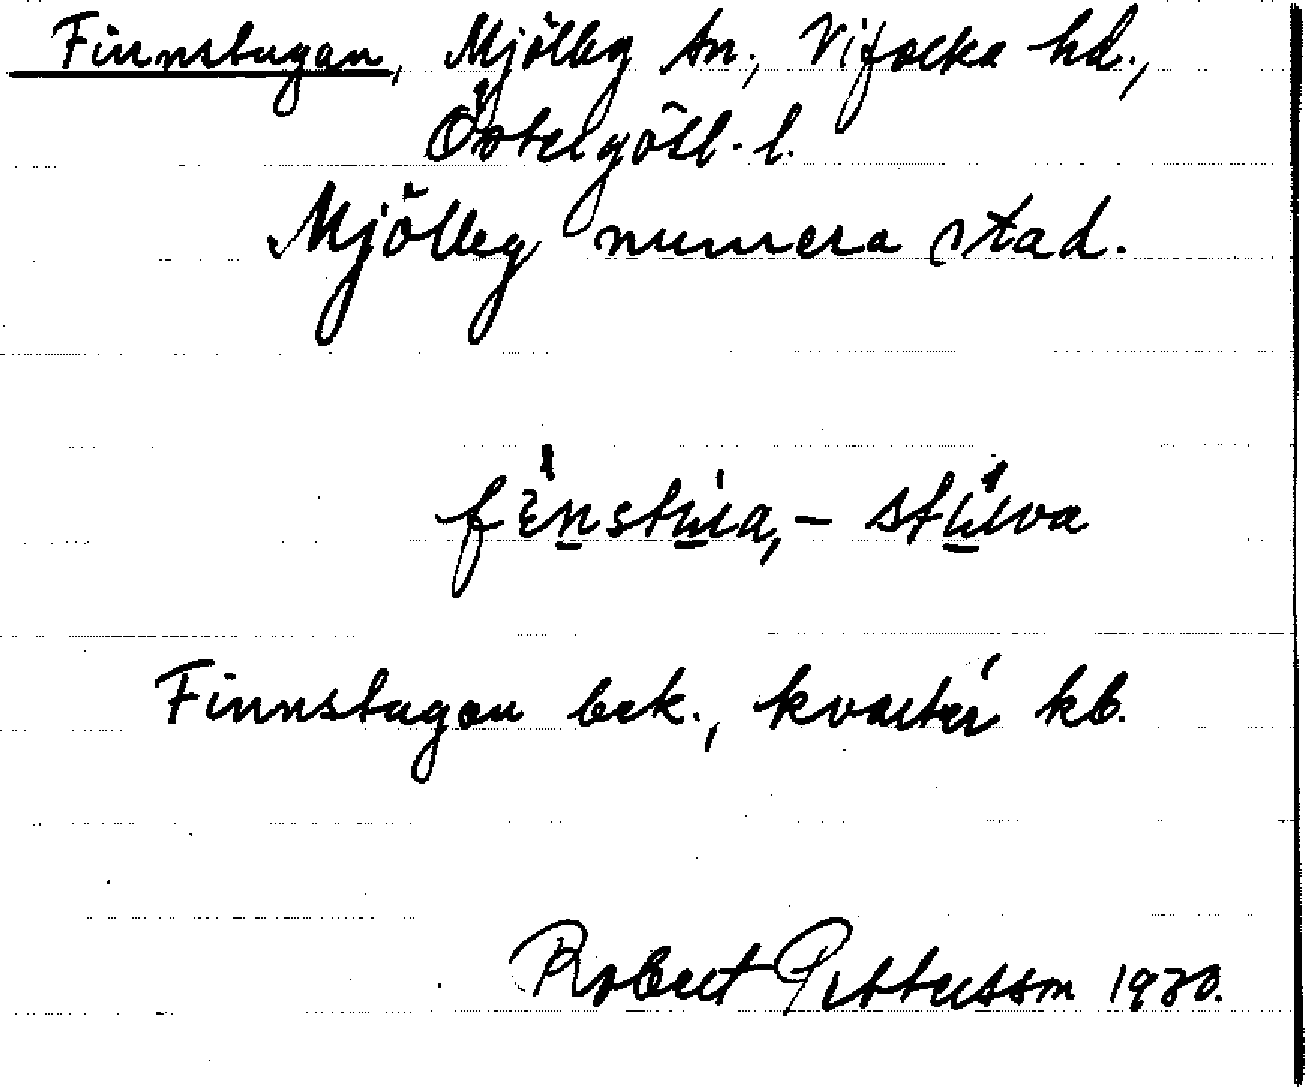 Finnstugan, Mjölby sn., Vifolka hd.,
Östergötl. l.
Mjölby numera stad.
fènstúa, - stúwa
Finnstugan bek., kvartér kb.
Robert Pettersson 1930.